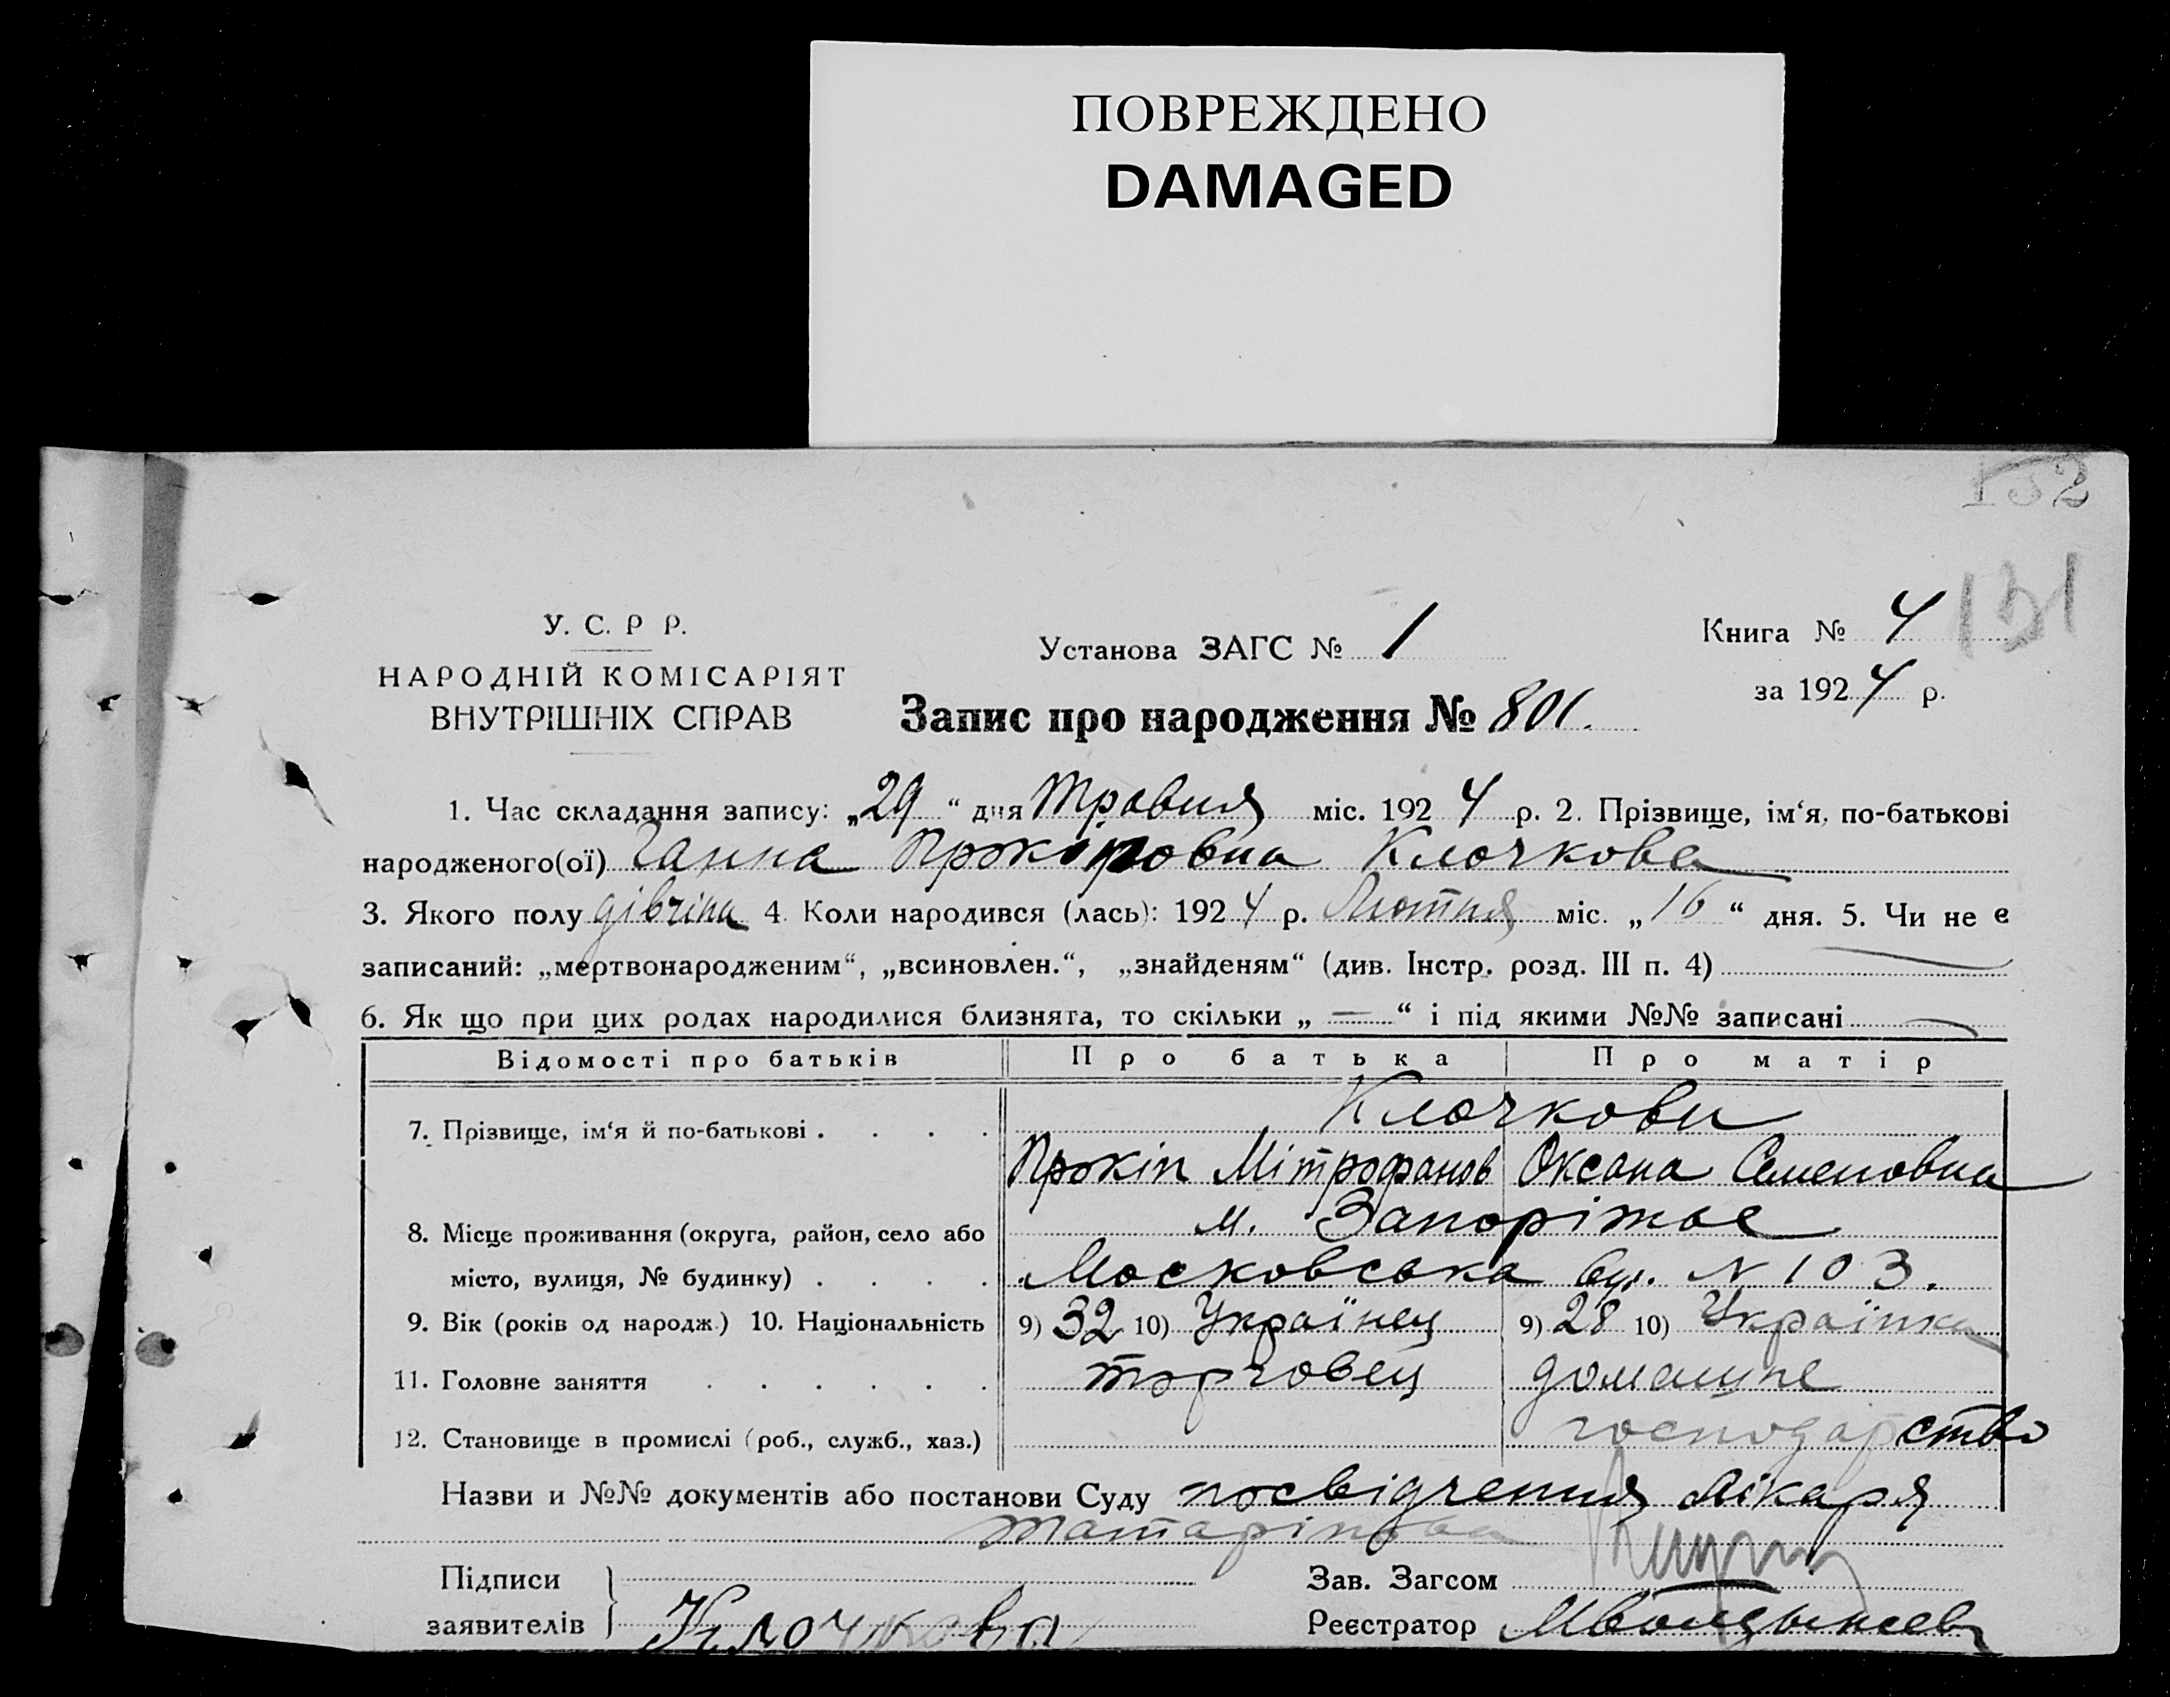 ПОВРЕЖДЕНО
DAMAGED
152
131
У. С. Р Р.
НАРОДНІЙ КОМІСАРІЯТ
ВНУТРІШНІХ СПРАВ
Установа ЗАГС № 1
Книга № 4
за 1924 р.
Запис про народження № 801.
1. Час складання запису: „29“ дня Травня міс. 1924 р. 2. Прізвище, ім‘я, по-батькові
народженого(ої) Ганна Прокіповна Клочкова
3. Якого полу дівчіна 4. Коли народився (лась): 1924 р. Лютня міс. „16“ дня. 5. Чи не є
записаний: „мертвонародженим“, „всиновлен.“, „знайденям“ (див. Інстр. розд. III п. 4) —
6. Як що при цих родах народилися близнята, то скільки „ — “ і під якими №№ записані —
Відомості про батьків Про батька Про матір
7. Прізвище, ім‘я й по-батькові . . . . Клочкови
Прокіп Мітрофанов Оксана Семеновна
8. Місце проживання (округа, район, село або м. Запоріжье
місто, вулиця, № будинку) . . . . Московська вул. N 103.
9. Вік (років од народж.) 10. Національність 9) 32 10) Українец 9) 28 10) Українка
11. Головне заняття . . . . . . торговец домашне
12. Становище в промислі (роб., служб., хаз.) господарство
Назви и №№ документів або постанови Суду посвідчення лікаря
Татарінова
Підписи
заявителів Клочкова
Зав. Загсом
Реєстратор